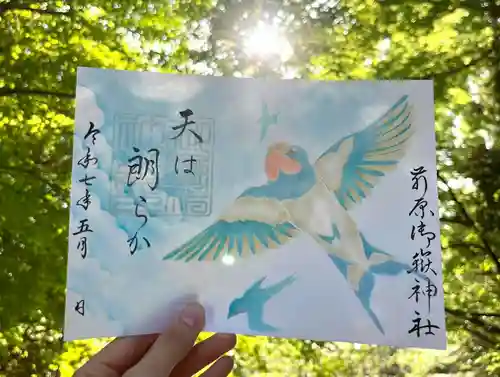 前原御嶽神社
天は
朗らか
令和七年五月 日